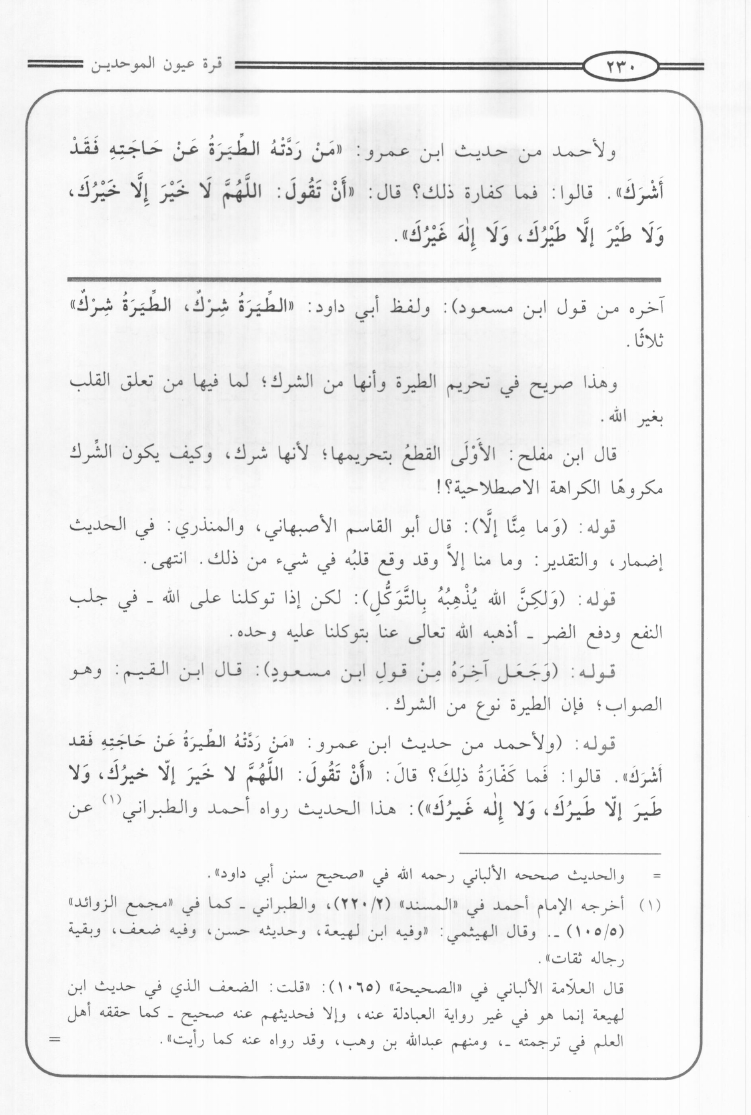 ٢٣٠ قرة عيون الموحدين
ولأحمد من حديث ابن عمرو: «مَنْ رَدَّتْهُ الطِّيَرَةُ عَنْ حَاجَتِهِ فَقَدْ
أَشْرَكَ». قالوا: فما كفارة ذلك؟ قال: «أَنْ تَقُولَ: اللَّهُمَّ لَا خَيْرَ إِلَّا خَيْرُكَ،
وَلَا طَيْرَ إلَّا طَيْرُكَ، وَلَا إِلٰهَ غَيْرُكَ».
آخره من قول ابن مسعود): ولفظ أبي داود: «الطِّيَرَةُ شِرْكٌ، الطِّيَرَةُ شِرْكٌ»
ثلاثًا.
وهذا صريح في تحريم الطيرة وأنها من الشرك؛ لما فيها من تعلق القلب
بغير الله.
قال ابن مفلح: الأَوْلَى القطعُ بتحريمها؛ لأنها شرك، وكيف يكون الشِّرك
مكروهًا الكراهة الاصطلاحية؟!
قوله: (وَما مِنَّا إلَّا): قال أبو القاسم الأصبهاني، والمنذري: في الحديث
إضمار، والتقدير: وما منا إلاَّ وقد وقع قلبُه في شيء من ذلك. انتهى.
قوله: (وَلكِنَّ الله يُذْهِبُهُ بِالتَّوَكُّلِ): لكن إذا توكلنا على الله ـ في جلب
النفع ودفع الضر ـ أذهبه الله تعالى عنا بتوكلنا عليه وحده.
قوله: (وَجَعَل آخِرَهُ مِنْ قولِ ابن مسعودٍ): قال ابن القيم: وهو
الصواب؛ فإن الطيرة نوع من الشرك.
قوله: (ولأحمد من حديث ابن عمرو: «مَن رَدَّتْهُ الطِّيرةُ عَنْ حَاجَتِهِ فَقد
أشْرَكَ». قالوا: فَما كَفّارَةُ ذلِكَ؟ قالَ: «أَنْ تَقُولَ: اللَّهُمَّ لا خَيرَ إلّا خيرُكَ، وَلا
طَيرَ إلّا طَيرُكَ، وَلا إِلٰه غَيرُكَ»): هذا الحديث رواه أحمد والطبراني(١) عن
= والحديث صححه الألباني رحمه الله في «صحيح سنن أبي داود».
(١) أخرجه الإمام أحمد في «المسند» (٢/٢٢٠)، والطبراني ـ كما في «مجمع الزوائد»
(٥/١٠٥) ـ. وقال الهيثمي: «وفيه ابن لهيعة، وحديثه حسن، وفيه ضعف، وبقية
رجاله ثقات».
قال العلّامة الألباني في «الصحيحة» (١٠٦٥): «قلت: الضعف الذي في حديث ابن
لهيعة إنما هو في غير رواية العبادلة عنه، وإلا فحديثهم عنه صحيح ـ كما حققه أهل
العلم في ترجمته ـ، ومنهم عبدالله بن وهب، وقد رواه عنه كما رأيت». =